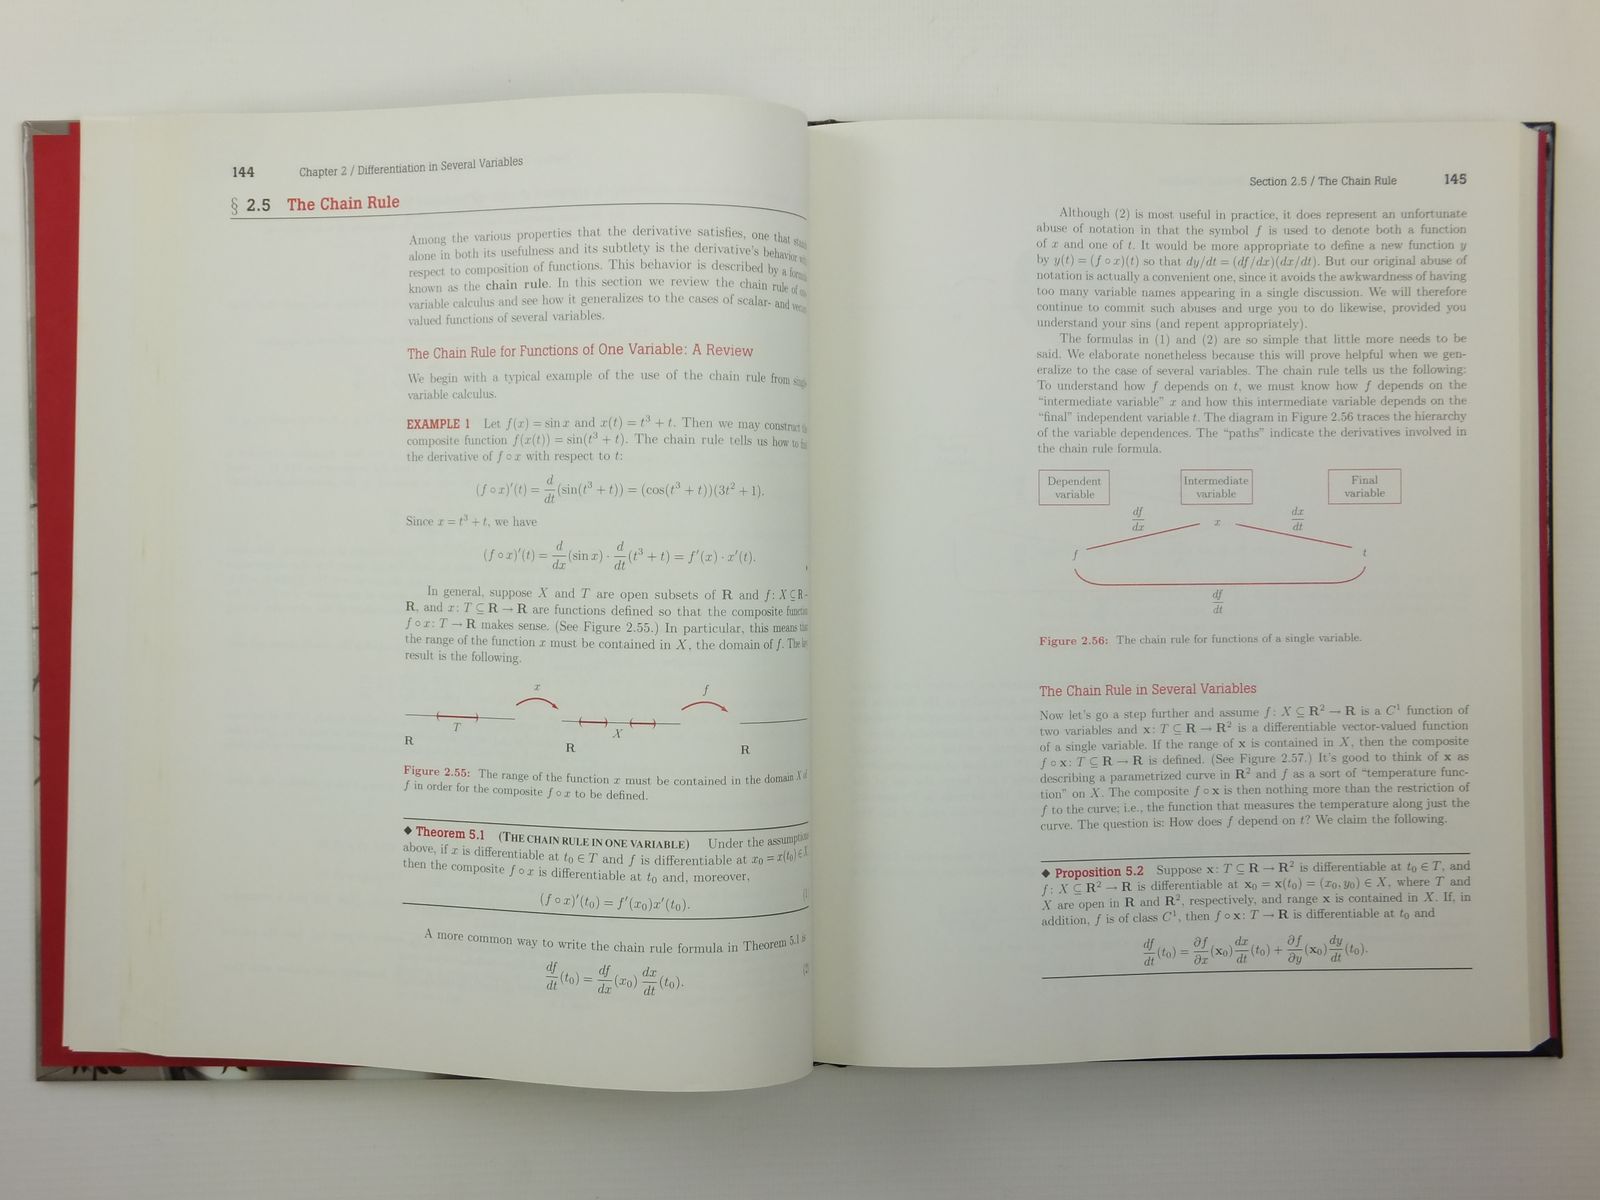 144 Chapter 2 / Differentiation in Several Variables
§ 2.5 The Chain Rule
Among the various properties that the derivative satisfies, one that
alone in both its usefulness and its subtlety is the derivative's behavior
respect to composition of functions. This behavior is described by a
known as the chain rule. In this section we review the chain rule of
variable calculus and see how it generalizes to the cases of scalar- and
valued functions of several variables.
The Chain Rule for Functions of One Variable: A Review
We begin with a typical example of the use of the chain rule from
variable calculus.
EXAMPLE 1 Let f(x) = sin x and x(t) = t³ + t. Then we may construct
composite function f(x(t)) = sin(t³ + t). The chain rule tells us how to
the derivative of f ∘ x with respect to t:
(f ∘ x)′(t) = d/dt (sin(t³ + t)) = (cos(t³ + t))(3t² + 1).
Since x = t³ + t, we have
(f ∘ x)′(t) = d/dx (sin x) · d/dt (t³ + t) = f′(x) · x′(t).
In general, suppose X and T are open subsets of R and f: X ⊆ R →
R, and x: T ⊆ R → R are functions defined so that the composite function
f ∘ x: T → R makes sense. (See Figure 2.55.) In particular, this means
the range of the function x must be contained in X, the domain of f. The
result is the following.
x f
T X
R R R
Figure 2.55: The range of the function x must be contained in the domain X of
f in order for the composite f ∘ x to be defined.
◆ Theorem 5.1 (THE CHAIN RULE IN ONE VARIABLE) Under the
above, if x is differentiable at t₀ ∈ T and f is differentiable at x₀ = x(t₀) ∈ X
then the composite f ∘ x is differentiable at t₀ and, moreover,
(f ∘ x)′(t₀) = f′(x₀)x′(t₀). (1
A more common way to write the chain rule formula in Theorem 5.1 is
df/dt (t₀) = df/dx (x₀) dx/dt (t₀). (2)
Section 2.5 / The Chain Rule 145
Although (2) is most useful in practice, it does represent an unfortunate
abuse of notation in that the symbol f is used to denote both a function
of x and one of t. It would be more appropriate to define a new function y
by y(t) = (f ∘ x)(t) so that dy/dt = (df/dx)(dx/dt). But our original abuse of
notation is actually a convenient one, since it avoids the awkwardness of having
too many variable names appearing in a single discussion. We will therefore
continue to commit such abuses and urge you to do likewise, provided you
understand your sins (and repent appropriately).
The formulas in (1) and (2) are so simple that little more needs to be
said. We elaborate nonetheless because this will prove helpful when we gen-
eralize to the case of several variables. The chain rule tells us the following:
To understand how f depends on t, we must know how f depends on the
“intermediate variable” x and how this intermediate variable depends on the
“final” independent variable t. The diagram in Figure 2.56 traces the hierarchy
of the variable dependences. The “paths” indicate the derivatives involved in
the chain rule formula.
Dependent variable
Intermediate variable
Final variable
df/dx x dx/dt
f t
df/dt
Figure 2.56: The chain rule for functions of a single variable.
The Chain Rule in Several Variables
Now let's go a step further and assume f: X ⊆ R² → R is a C¹ function of
two variables and x: T ⊆ R → R² is a differentiable vector-valued function
of a single variable. If the range of x is contained in X, then the composite
f ∘ x: T ⊆ R → R is defined. (See Figure 2.57.) It's good to think of x as
describing a parametrized curve in R² and f as a sort of “temperature func-
tion” on X. The composite f ∘ x is then nothing more than the restriction of
f to the curve; i.e., the function that measures the temperature along just the
curve. The question is: How does f depend on t? We claim the following.
◆ Proposition 5.2 Suppose x: T ⊆ R → R² is differentiable at t₀ ∈ T, and
f: X ⊆ R² → R is differentiable at x₀ = x(t₀) = (x₀, y₀) ∈ X, where T and
X are open in R and R², respectively, and range x is contained in X. If, in
addition, f is of class C¹, then f ∘ x: T → R is differentiable at t₀ and
df/dt (t₀) = ∂f/∂x (x₀) dx/dt (t₀) + ∂f/∂y (x₀) dy/dt (t₀).